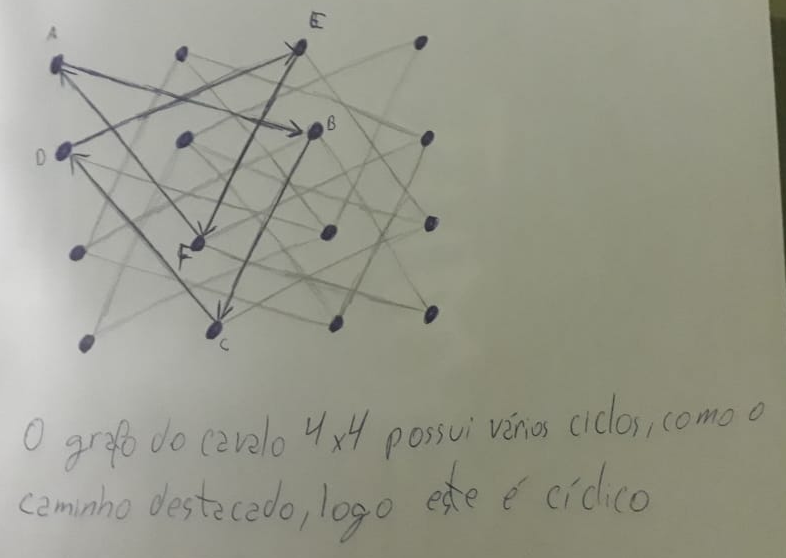 A
E
B
D
F
C
O grafo do cavalo 4x4 possui vários ciclos, como o
caminho destacado, logo este é cíclico